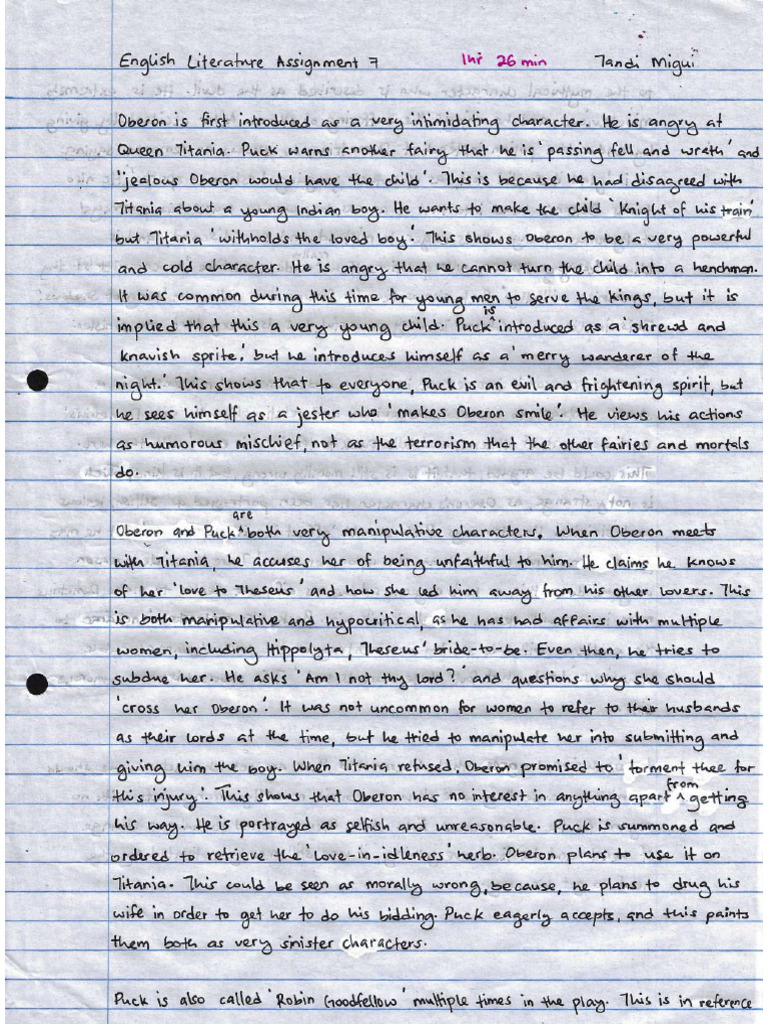 English Literature Assignment 7 1hr 26 min Tandi Migui
Oberon is first introduced as a very intimidating character. He is angry at
Queen Titania. Puck warns another fairy that he is 'passing fell and wrath' and
'jealous Oberon would have the child'. This is because he had disagreed with
Titania about a young Indian boy. He wants to make the child 'Knight of his train'
but Titania 'withholds the loved boy'. This shows Oberon to be a very powerful
and cold character. He is angry that he cannot turn the child into a henchman.
It was common during this time for young men to serve the kings, but it is
implied that this a very young child. Puck is introduced as a 'shrewd and
knavish sprite,' but he introduces himself as a 'merry wanderer of the
night.' This shows that to everyone, Puck is an evil and frightening spirit, but
he sees himself as a jester who 'makes Oberon smile'. He views his actions
as humorous mischief, not as the terrorism that the other fairies and mortals
do.
Oberon and Puck are both very manipulative characters. When Oberon meets
with Titania, he accuses her of being unfaithful to him. He claims he knows
of her 'love to Theseus' and how she led him away from his other lovers. This
is both manipulative and hypocritical, as he has had affairs with multiple
women, including Hippolyta, Theseus' bride-to-be. Even then, he tries to
subdue her. He asks 'Am I not thy lord?' and questions why she should
'cross her Oberon'. It was not uncommon for women to refer to their husbands
as their lords at the time, but he tried to manipulate her into submitting and
giving him the boy. When Titania refused, Oberon promised to 'torment thee for
this injury'. This shows that Oberon has no interest in anything apart from getting
his way. He is portrayed as selfish and unreasonable. Puck is summoned and
ordered to retrieve the 'love-in-idleness' herb. Oberon plans to use it on
Titania. This could be seen as morally wrong, because, he plans to drug his
wife in order to get her to do his bidding. Puck eagerly accepts, and this paints
them both as very sinister characters.
Puck is also called 'Robin Goodfellow' multiple times in the play. This is in reference